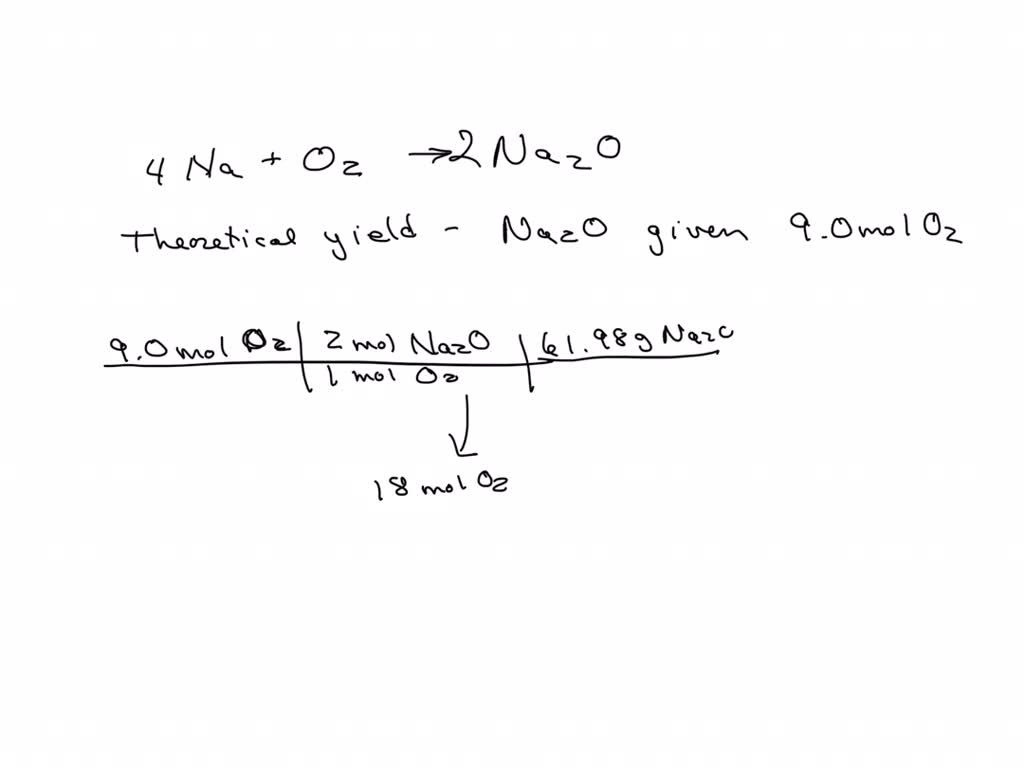 4 Na + O2 → 2 Na2O
Theoretical yield - Na2O given 9.0 mol O2
9.0 mol O2 | 2 mol Na2O | 61.98 g Na2O
1 mol O2
↓
18 mol O2